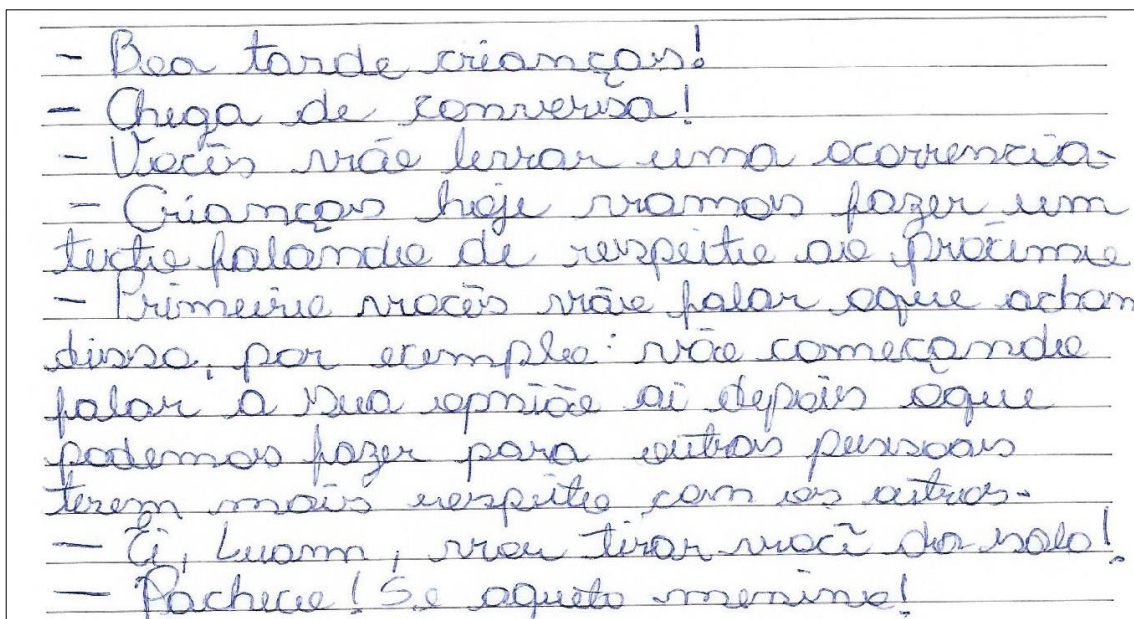 - Boa tarde crianças!
- Chega de conversa!
- Vocês vão levar uma ocorrencia.
- Crianças hoje vamos fazer um
texto falando de respeito ao próximo
- Primeiro vocês vão falar oque acham
disso, por exemplo: vão começando
falar a sua opnião ai depois oque
podemos fazer para outras pessoas
terem mais respeito com os outros.
- Ei, Luann, vou tirar você da sala!
- Pacheco! Se aqueto menino!